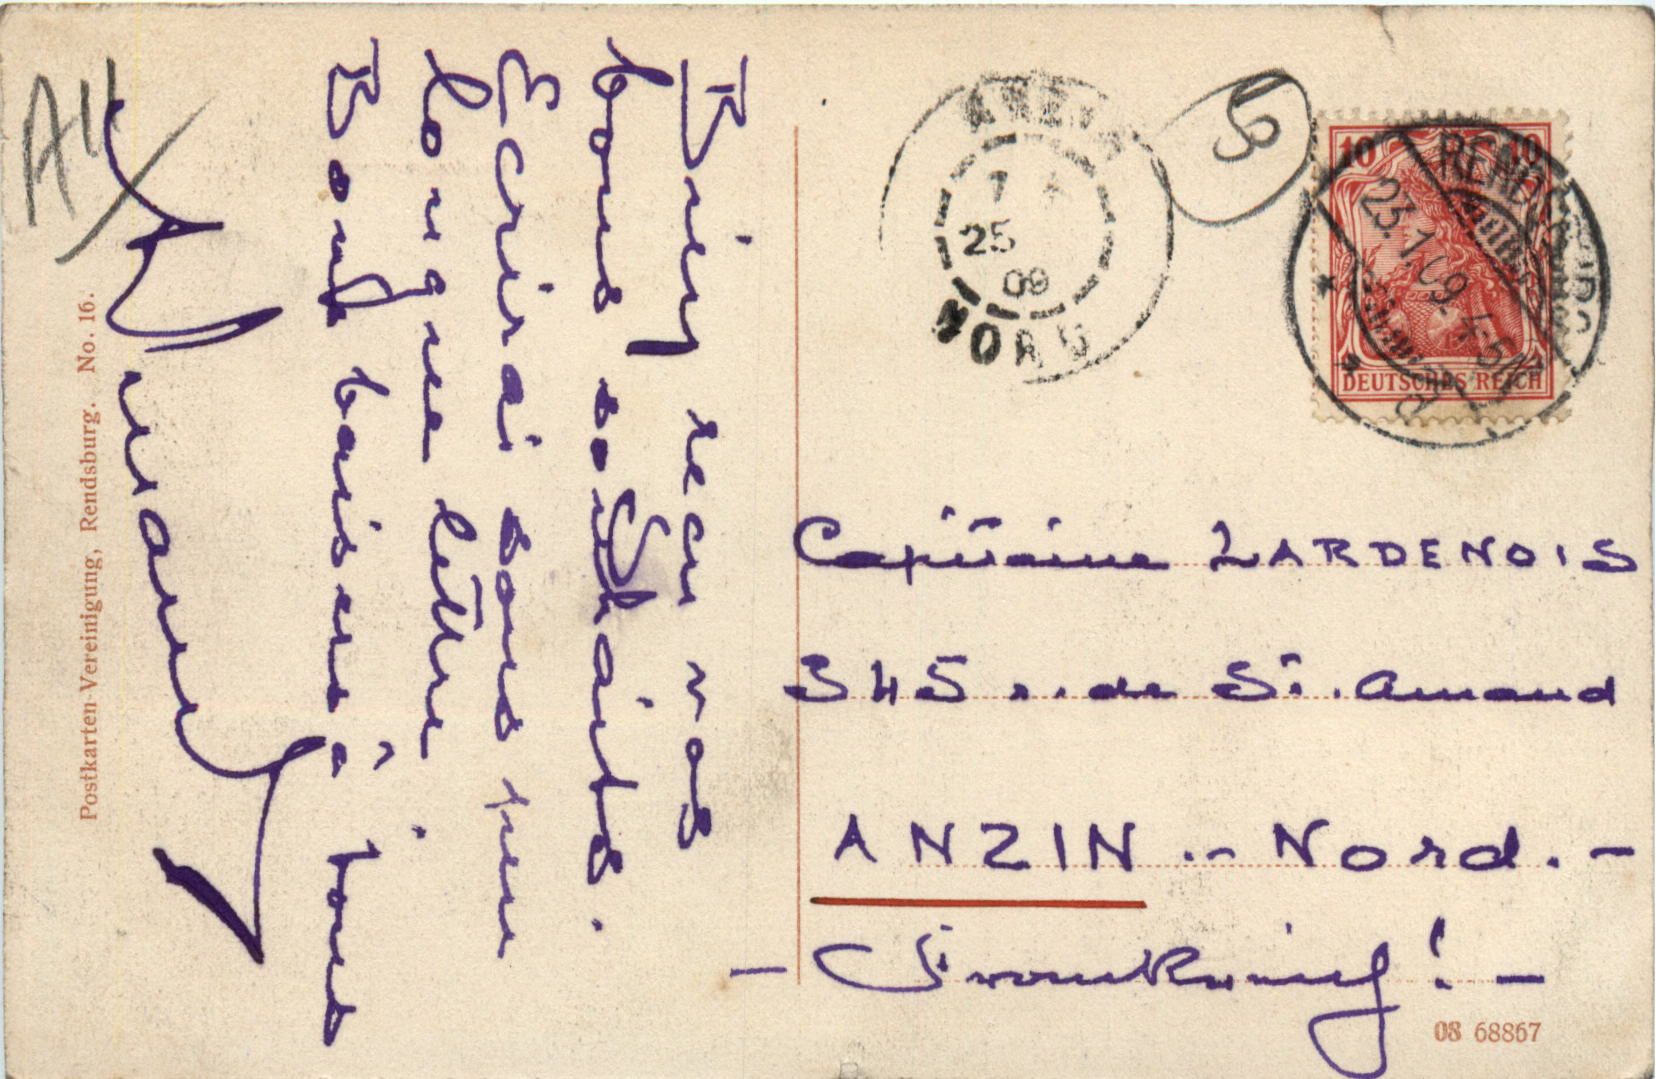 Bien recu vos
bons souhaits.
Ecrirai sous peu
longue lettre
Bons baisers à tous
AH
5
ANZIN
7
25
09
NORD
10 10
DEUTSCHES REICH
RENDSBURG
23.1.09.4-5N.
Capitaine LARDENOIS
345 r. de St. Amand
ANZIN.- Nord.-
- Frankreich! -
08 68867
Postkarten-Vereinigung, Rendsburg. No. 16.